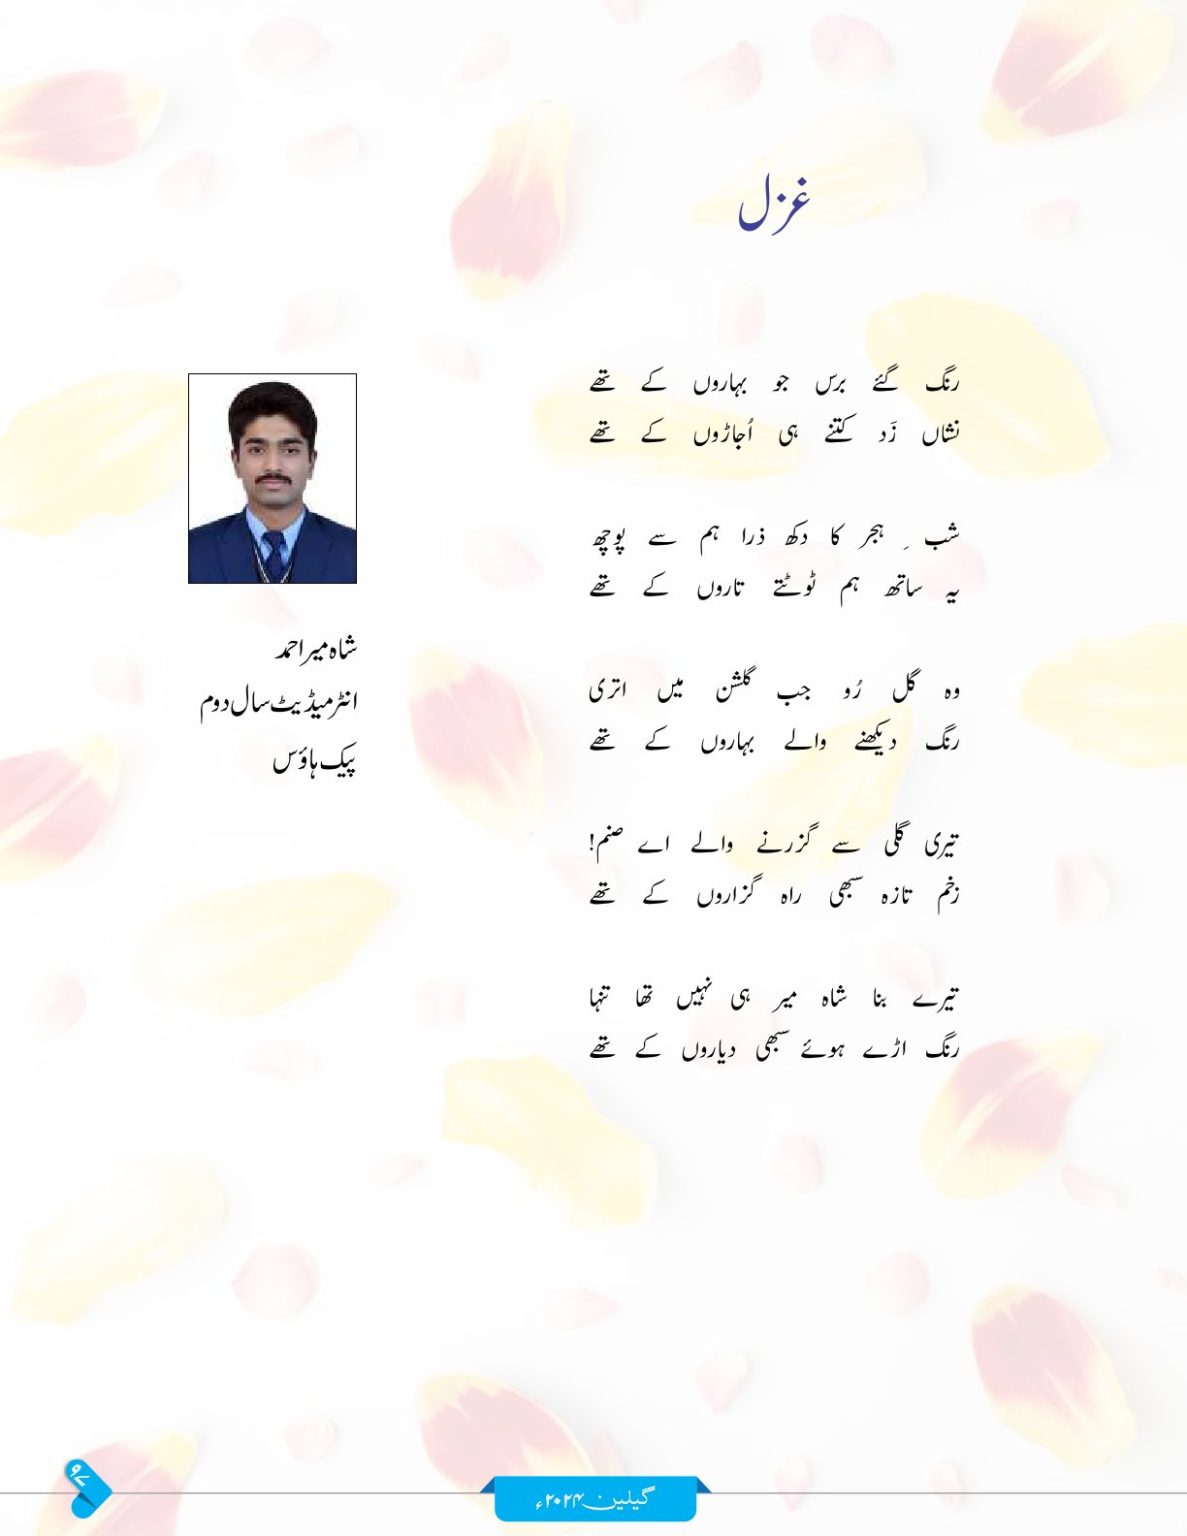 غزل
رنگ گئے برس جو بہاروں کے تھے
نشاں زَد کتنے ہی اُجاڑوں کے تھے
شب ِ ہجر کا دکھ ذرا ہم سے پوچھ
یہ ساتھ ہم ٹوٹتے تاروں کے تھے
وہ گل رُو جب گلشن میں اتری
رنگ دیکھنے والے بہاروں کے تھے
تیری گلی سے گزرنے والے اے صنم!
زخم تازہ سبھی راہ گزاروں کے تھے
تیرے بنا شاہ میر ہی نہیں تھا تنہا
رنگ اڑے ہوئے سبھی دیاروں کے تھے
شاہ میر احمد
انٹرمیڈیٹ سال دوم
پیک ہاؤس
گیلین ۲۰۲۴ء